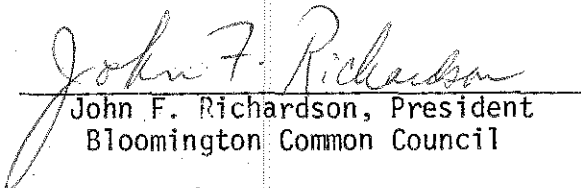 John F. Richardson
John F. Richardson, President
Bloomington Common Council